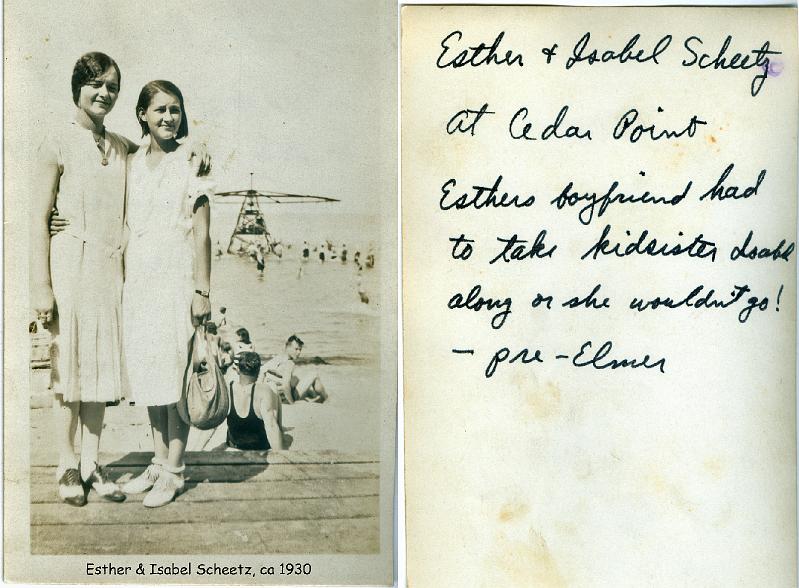 Esther & Isabel Scheetz, ca 1930
Esther & Isabel Scheetz
at Cedar Point
Esthers boyfriend had
to take kidsister Isabel
along or she wouldn't go!
- pre-Elmer